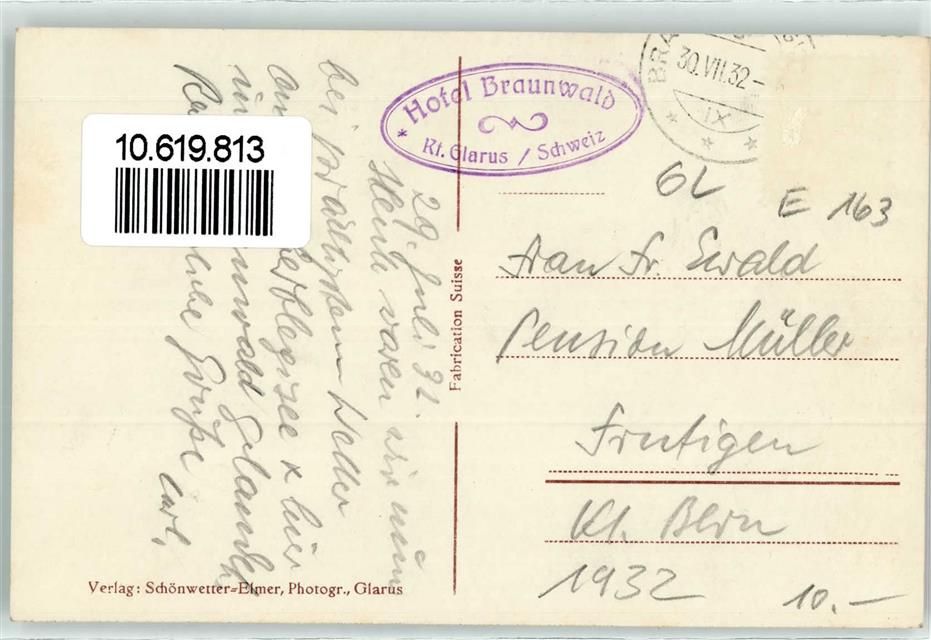 10.619.813
Hotel Braunwald
* Kt. Glarus / Schweiz
BRA
30.VII.32-
IX
29. Juli 32.
Heute waren wir nun
bei prächtigem Wetter
am
hier
gelandet
liebe Grüße Carl.
Fabrication Suisse
6L
E 163
Frau Fr. Ewald
Pension Müller
Frutigen
Kt. Bern
1932
10.-
Verlag: Schönwetter-Elmer, Photogr., Glarus